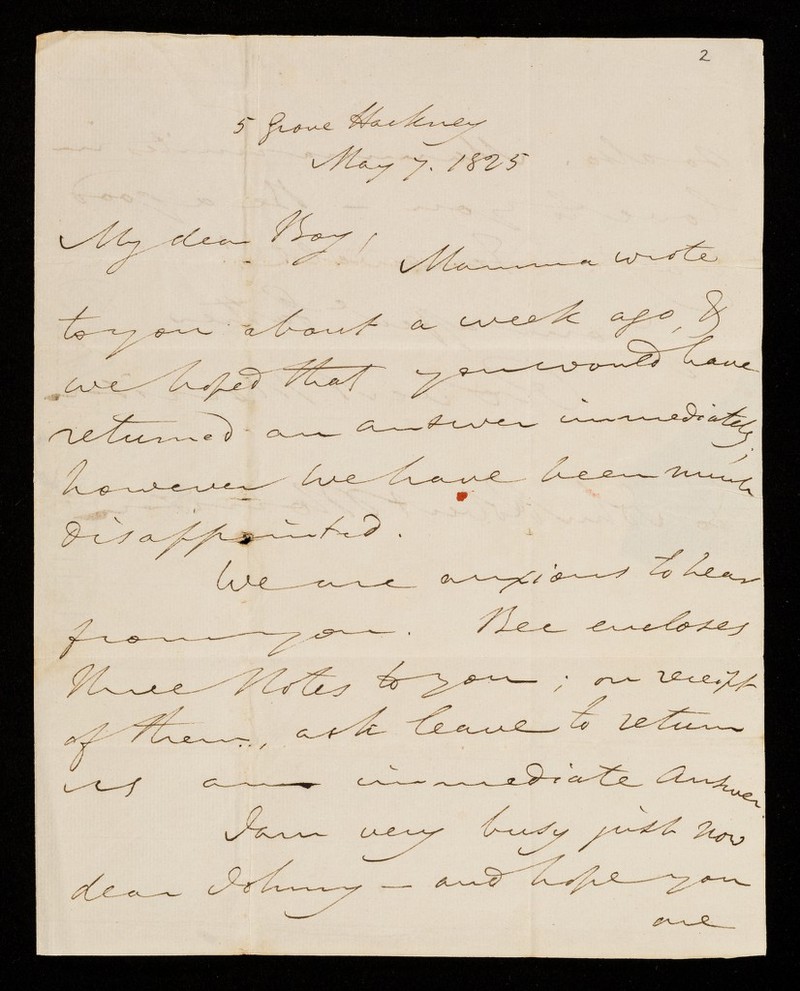 2
5 Grove Hackney
May 7. 1825
My dear Boy,
Mamma wrote
to you about a week ago, &
we hoped that you would have
returned an answer immediately,
however we have been much
disappointed.
We are anxious to hear
from you. Bee encloses
three Notes to you; on receipt
of them, ask leave to return
us an immediate Answer.
I am very busy just now
dear Johnny — and hope you
are